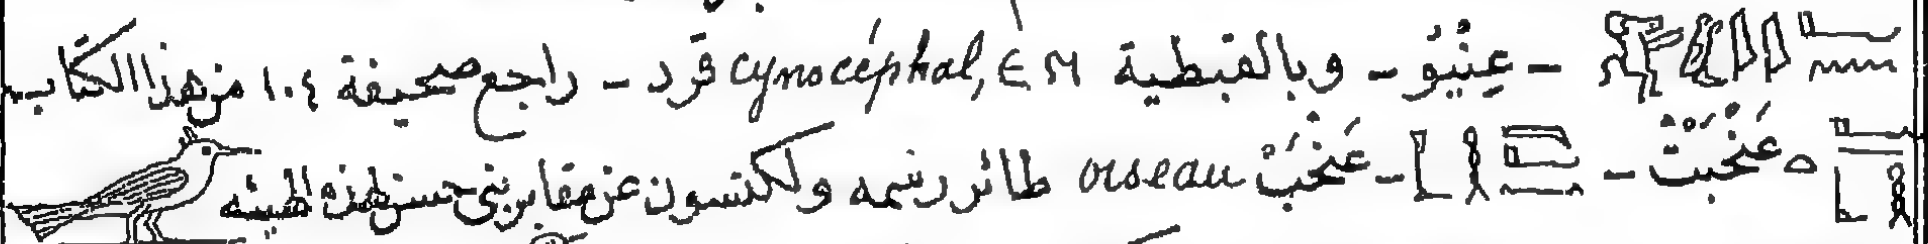 - عِنْيُو - وبالقبطية ⲉⲛ ,cynocéphal قرد - راجع صحيفة ١٠٤ من هذا الكتاب
عَنْخَبْتْ - - عَنْخَبْ oiseau طائر رسمه ولكنسون عن مقابر بنى حسن بهذه الهيئه